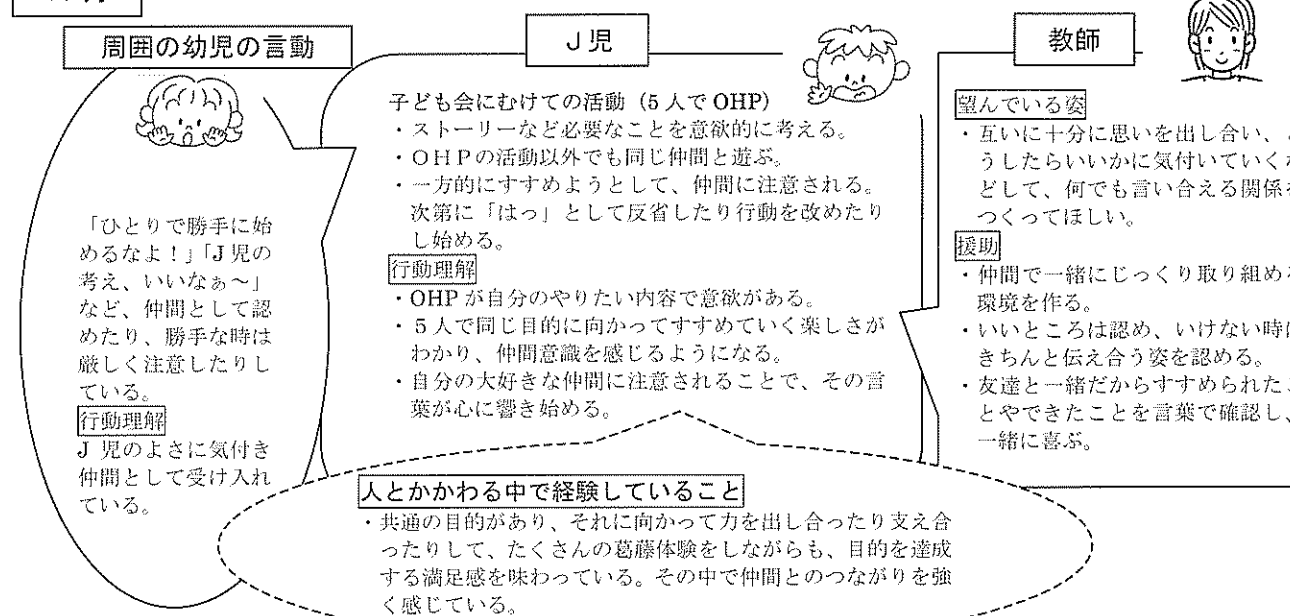 周囲の幼児の言動
「ひとりで勝手に始
めるなよ！」「J児の
考え、いいなぁ～」
など、仲間として認
めたり、勝手な時は
厳しく注意したりし
ている。
行動理解
J 児のよさに気付き
仲間として受け入れ
ている。
J児
子ども会にむけての活動（5人でOHP）
・ストーリーなど必要なことを意欲的に考える。
・OHPの活動以外でも同じ仲間と遊ぶ。
・一方的にすすめようとして、仲間に注意される。
次第に「はっ」として反省したり行動を改めたり
し始める。
行動理解
・OHPが自分のやりたい内容で意欲がある。
・5人で同じ目的に向かってすすめていく楽しさが
わかり、仲間意識を感じるようになる。
・自分の大好きな仲間に注意されることで、その言
葉が心に響き始める。
教師
望んでいる姿
・互いに十分に思いを出し合い、
うしたらいいかに気付いていく
どして、何でも言い合える関係
つくってほしい。
援助
・仲間で一緒にじっくり取り組め
環境を作る。
・いいところは認め、いけない時
きちんと伝え合う姿を認める。
・友達と一緒だからすすめられた
とやできたことを言葉で確認し、
一緒に喜ぶ。
人とかかわる中で経験していること
・共通の目的があり、それに向かって力を出し合ったり支え合
ったりして、たくさんの葛藤体験をしながらも、目的を達成
する満足感を味わっている。その中で仲間とのつながりを強
く感じている。